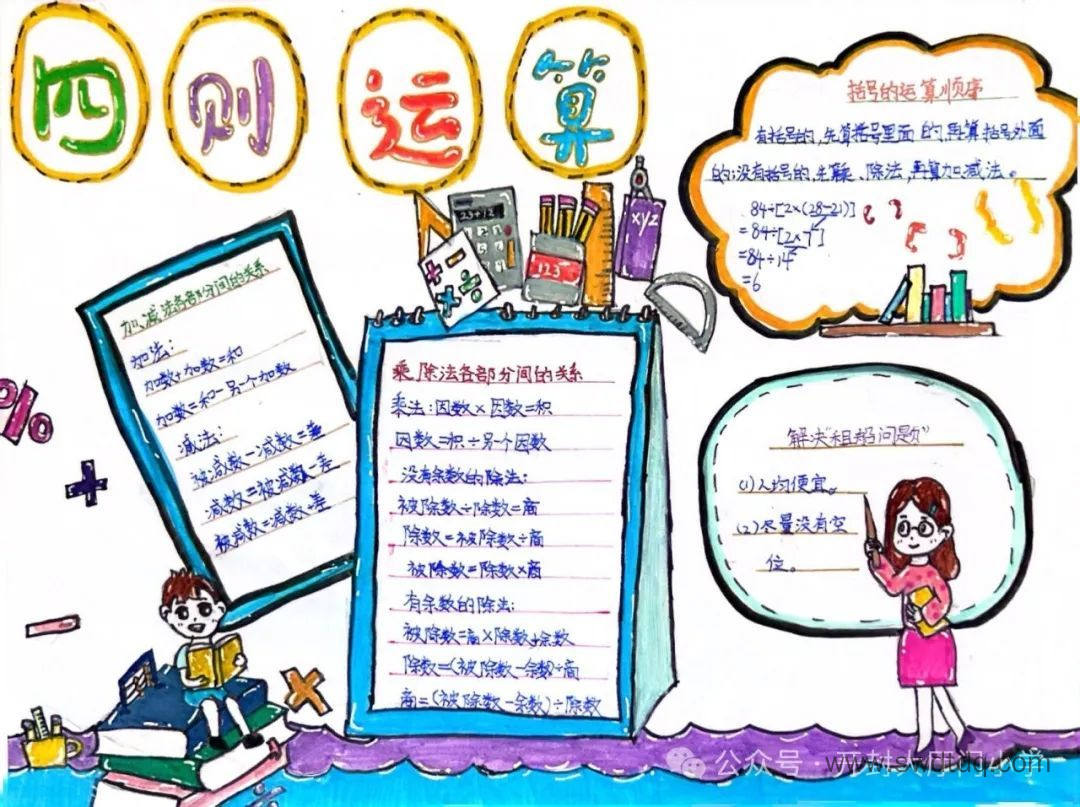 四则运算
加、减法各部分间的关系
加法:
加数+加数=和
加数=和-另一个加数
减法:
被减数-减数=差
减数=被减数-差
被减数=减数+差
%
+
23+12
123
xyz
乘、除法各部分间的关系
乘法:因数×因数=积
因数=积÷另一个因数
没有余数的除法:
被除数÷除数=商
除数=被除数÷商
被除数=除数×商
有余数的除法:
被除数=商×除数+余数
除数=(被除数-余数)÷商
商=(被除数-余数)÷除数
括号的运算顺序
有括号的,先算括号里面的,再算括号外面
的;没有括号的,先算、除法,再算加、减法。
84÷[2×(28-21)]
=84÷[2×7]
=84÷14
=6
解决"租船问题"
(1)人均便宜。
(2)尽量没有空
位。
公众号